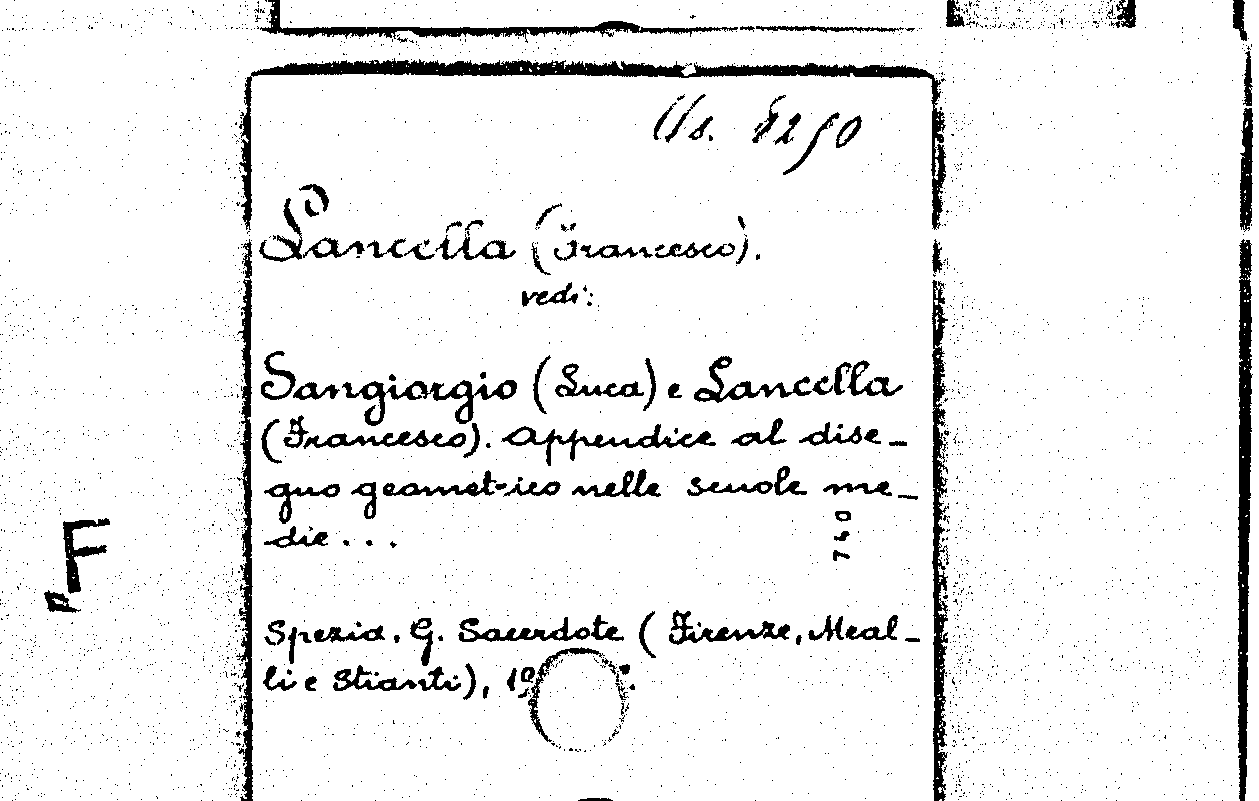 Us. 8250
Lancella (Francesco).
vedi:
Sangiorgio (Luca) e Lancella
(Francesco). Appendice al dise_
gno geometrico nelle scuole me_
die...
740
F
Spezia, G. Sacerdote (Firenze, Meal_
li e Stianti), 19